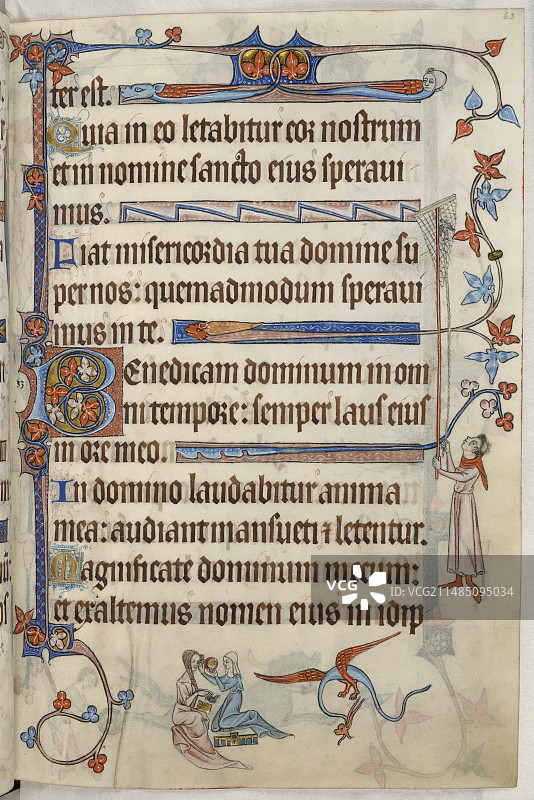 63
ter est.
Quia in eo letabitur cor nostrum
et in nomine sancto eius speraui
mus.
Fiat misericordia tua domine su
per nos: quemadmodum speraui
mus in te.
Benedicam dominum in om
ni tempore: semper laus eius
in ore meo.
In domino laudabitur anima
mea: audiant mansueti ⁊ letentur.
Magnificate dominum mecum:
et exaltemus nomen eius in idip
VCG
VCG211485095034